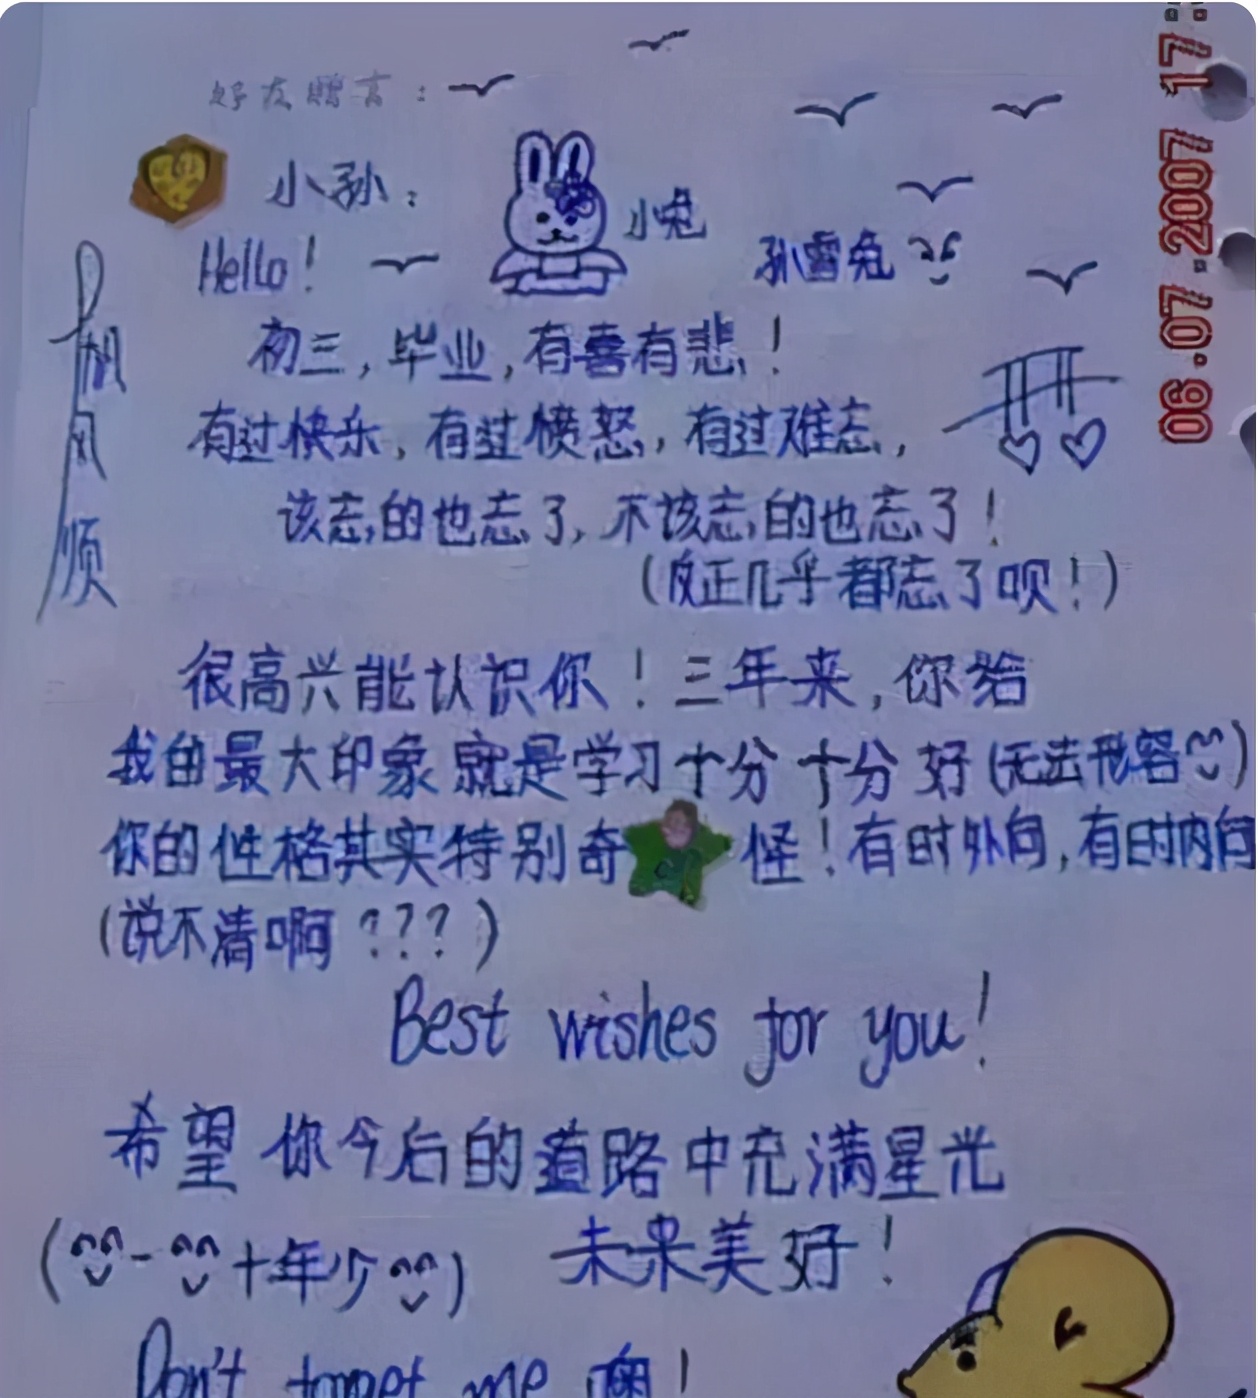 好友赠言：
小孙：
小兔
Hello！
孙雪兔
初三，毕业，有喜有悲！
有过快乐，有过愤怒，有过难忘，
该忘的也忘了，不该忘的也忘了！
（反正几乎都忘了呗！）
帆风顺
很高兴能认识你！三年来，你给
我的最大印象就是学习十分十分好（无法形容）
你的性格其实特别奇怪！有时外向，有时内向
（说不清啊？？？）
Best wishes for you!
希望你今后的道路中充满星光
（ - 十年少 ） 未来美好！
Don't forget me 噢！
06.07.2007 17: